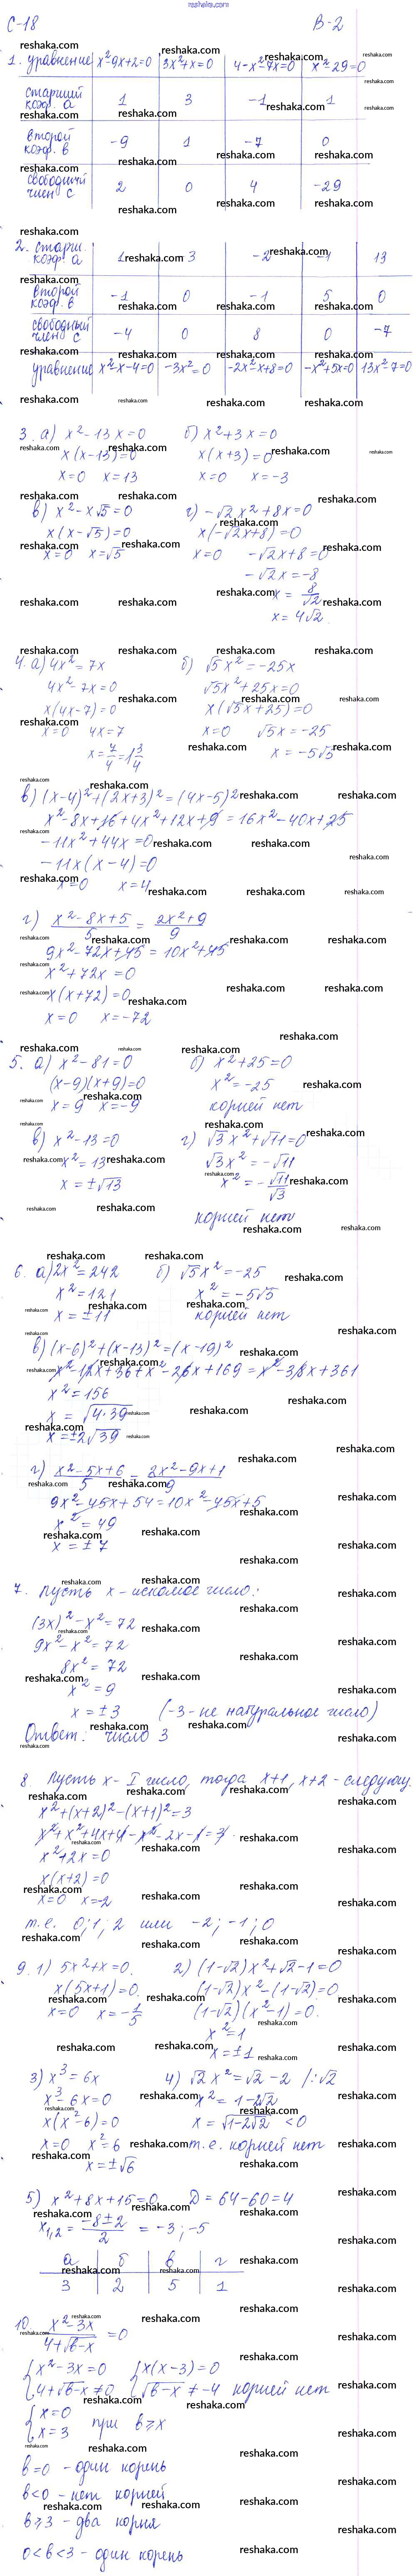 reshaka.com
С-18 В-2
1. уравнение x²-9x+2=0 3x²+x=0 4-x²-7x=0 x²-29=0
старший коэф. a 1 3 -1 1
второй коэф. b -9 1 -7 0
свободный член c 2 0 4 -29
2. старш. коэф. a 1 3 -2 -1 13
второй коэф. b -1 0 -1 5 0
свободный член c -4 0 8 0 -7
уравнение x²-x-4=0 -3x²=0 -2x²-x+8=0 -x²+5x=0 13x²-7=0
3. а) x²-13x=0 б) x²+3x=0
x(x-13)=0 x(x+3)=0
x=0 x=13 x=0 x=-3
в) x²-x√5=0 г) -√2x²+8x=0
x(x-√5)=0 x(-√2x+8)=0
x=0 x=√5 x=0 -√2x+8=0
-√2x=-8
x=8/√2
x=4√2
4. а) 4x²=7x б) √5x²=-25x
4x²-7x=0 √5x²+25x=0
x(4x-7)=0 x(√5x+25)=0
x=0 4x=7 x=0 √5x=-25
x=7/4=1 3/4 x=-5√5
в) (x-4)²+(2x+3)²=(4x-5)²
x²-8x+16+4x²+12x+9=16x²-40x+25
-11x²+44x=0
-11x(x-4)=0
x=0 x=4
г) (x²-8x+5)/5=(2x²+9)/9
9x²-72x+45=10x²+45
x²+72x=0
x(x+72)=0
x=0 x=-72
5. а) x²-81=0 б) x²+25=0
(x-9)(x+9)=0 x²=-25
x=9 x=-9 корней нет
в) x²-13=0 г) √3x²+√11=0
x²=13 √3x²=-√11
x=±√13 x²=-√11/√3
корней нет
6. а) 2x²=242 б) √5x²=-25
x²=121 x²=-5√5
x=±11 корней нет
в) (x-6)²+(x-13)²=(x-19)²
x²-12x+36+x²-26x+169=x²-38x+361
x²=156
x=√4·39
x=±2√39
г) (x²-5x+6)/5=(2x²-9x+1)/9
9x²-45x+54=10x²-45x+5
x²=49
x=±7
7. Пусть x-искомое число:
(3x)²-x²=72
9x²-x²=72
8x²=72
x²=9
x=±3 (-3-не натуральное число)
Ответ: число 3
8. Пусть x-I число, тогда x+1, x+2-следующ.
x²+(x+2)²-(x+1)²=3
x²+x²+4x+4-x²-2x-1=3
x²+2x=0
x(x+2)=0
x=0 x=-2
т.е. 0;1;2 или -2;-1;0
9. 1) 5x²+x=0. 2) (1-√2)x²+√2-1=0
x(5x+1)=0. (1-√2)x²-(1-√2)=0
x=0 x=-1/5 (1-√2)(x²-1)=0.
x²=1
x=±1
3) x³=6x 4) √2x²=√2-2 /:√2
x³-6x=0 x²=1-2√2
x(x²-6)=0 x=√1-2√2 <0
x=0 x²=6 т.е. корней нет
x=±√6
5) x²+8x+15=0 D=64-60=4
x1,2=(-8±2)/2=-3;-5
а б в г
3 2 5 1
10. (x²-3x)/(4+√b-x)=0
{x²-3x=0 {x(x-3)=0
{4+√b-x≠0 {√b-x≠-4 корней нет
{x=0
{x=3 при b≥x
b=0 - один корень
b<0 - нет корней
b≥3 - два корня
0<b<3 - один корень